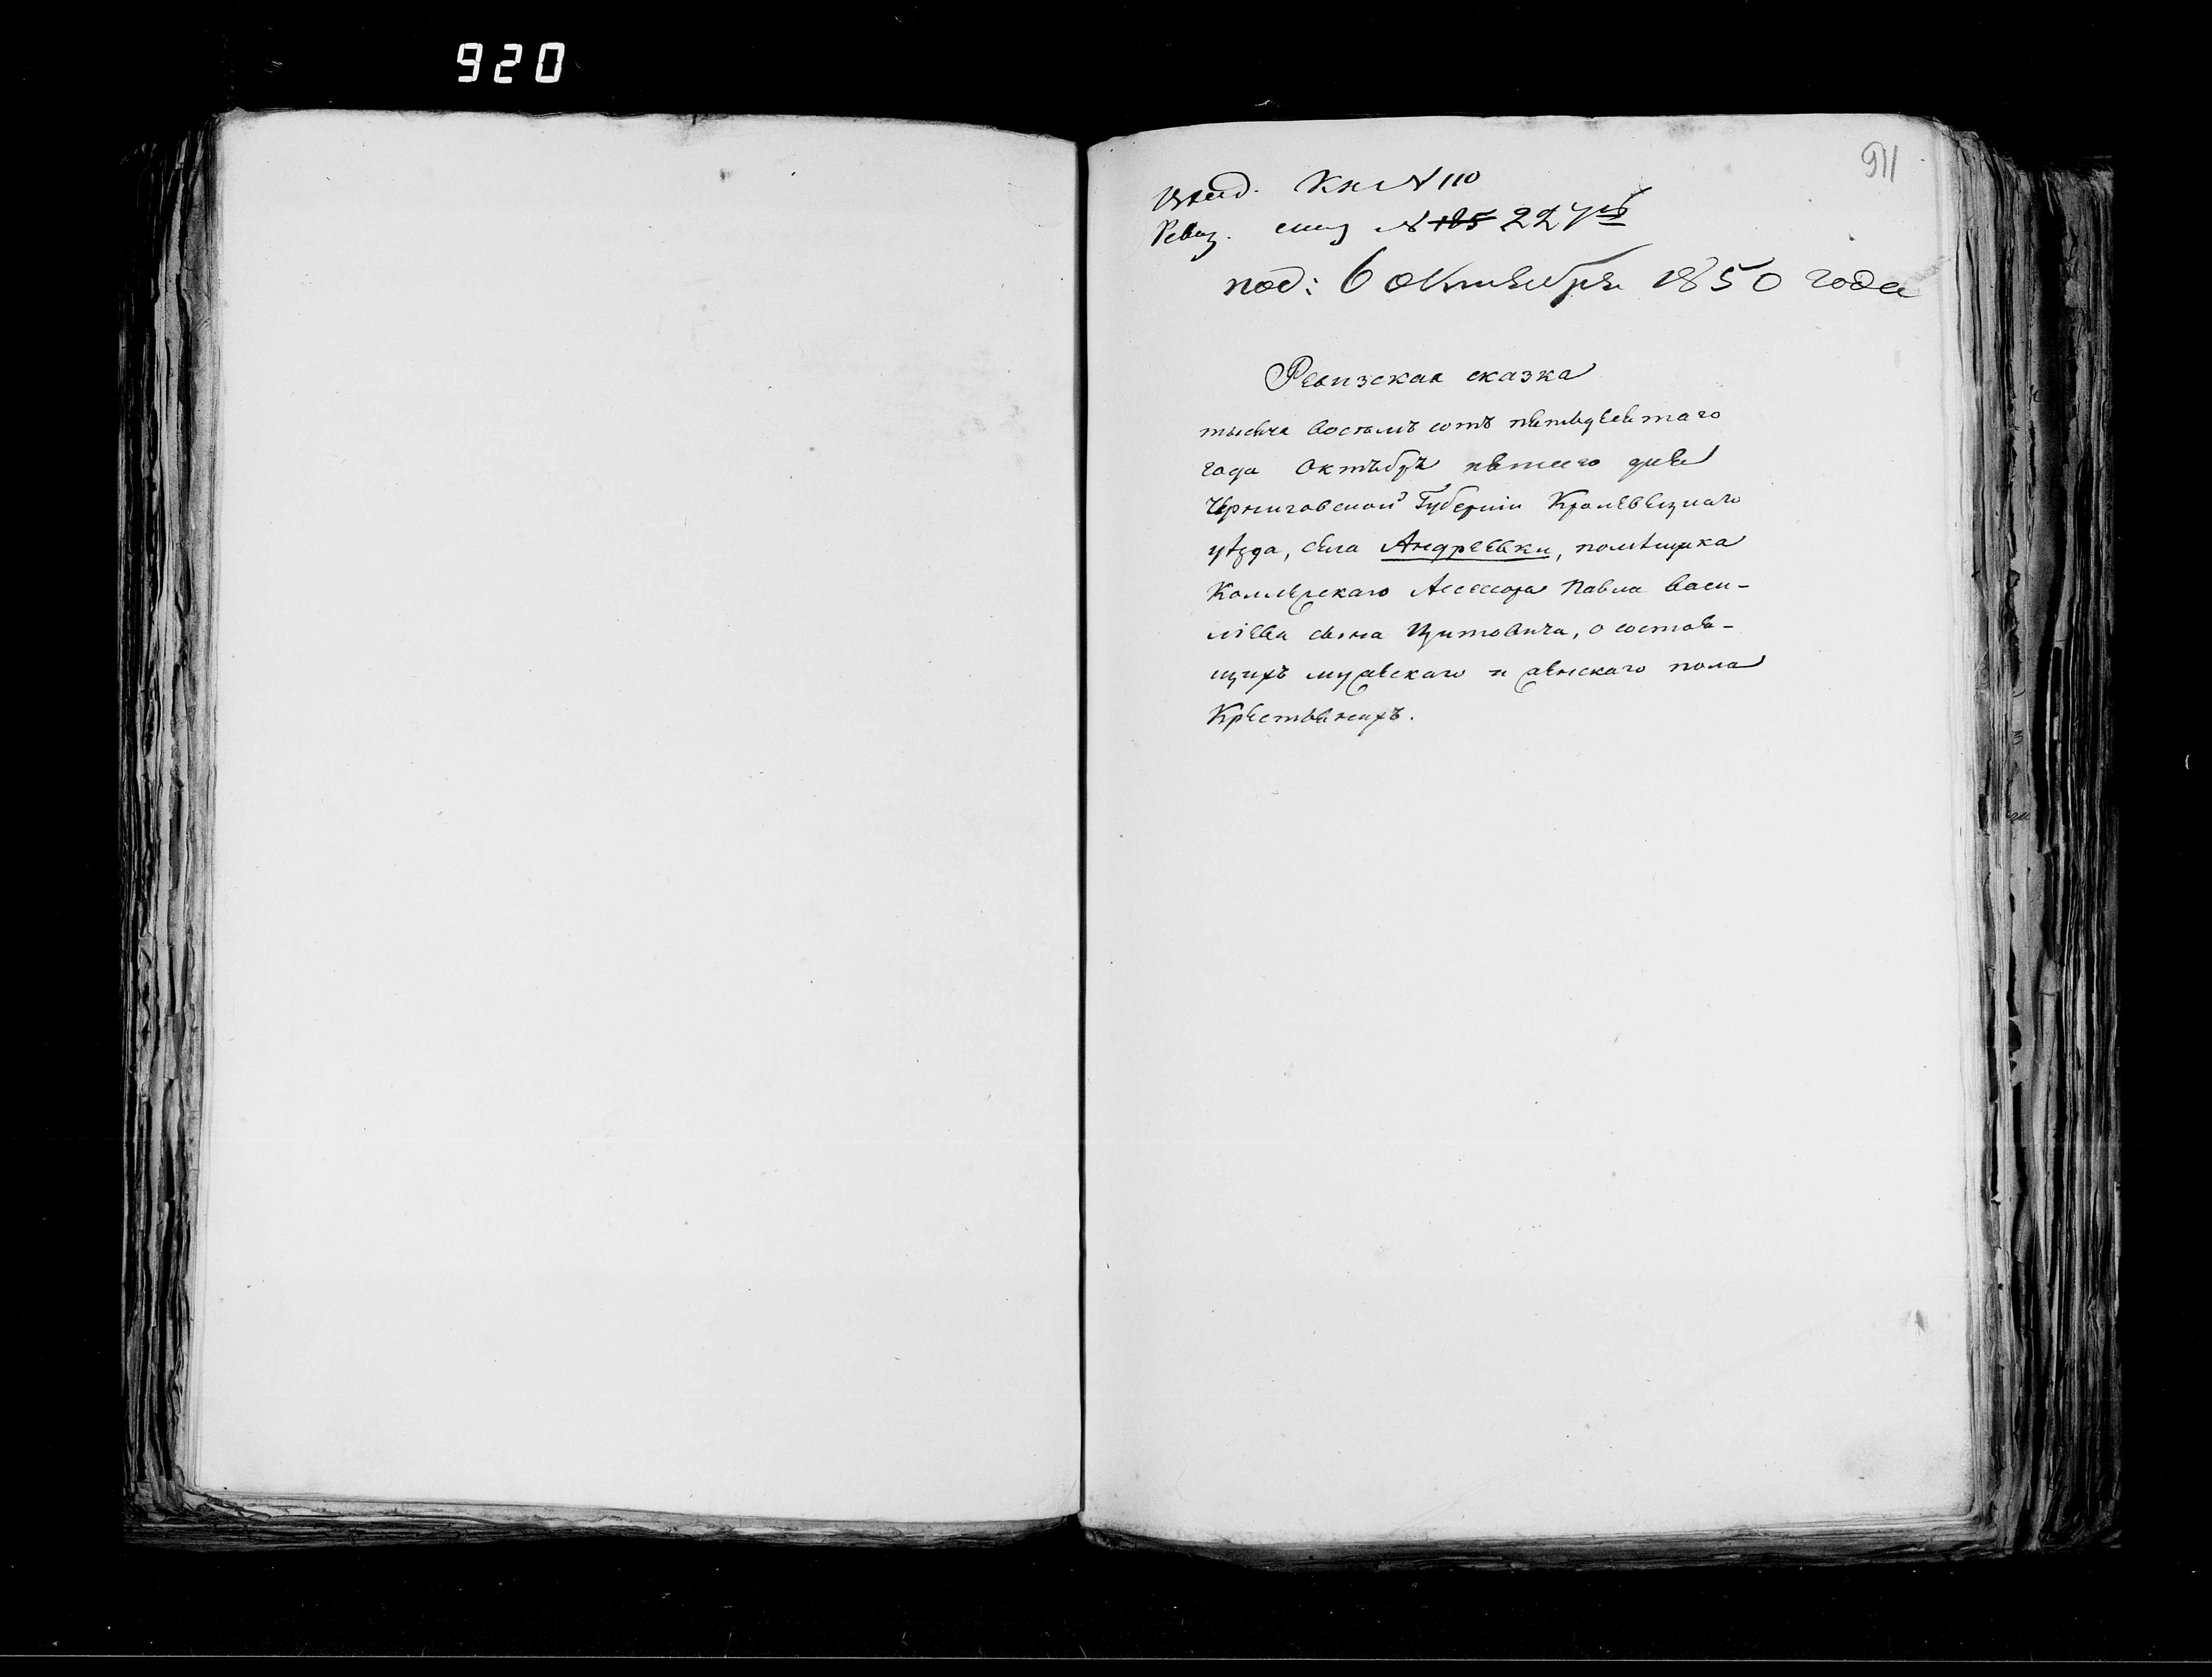 920
911
Вход. Кн № 110
Ревиз. № 185 227
под: 6 Октября 1850 года
Ревизская сказка
тысяча восемъ сотъ пятьдесятаго
года Октября пятого дня
Черниговской Губерніи Кролевецкаго
уѣзда, села Андреевки, помѣщика
Коллежскаго Асессора Павла Васи-
ліева сына Цитовича, о состоя-
щихъ мужескаго и женскаго пола
Крестьянахъ.